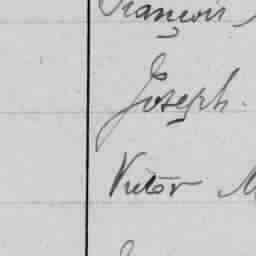 François
Joseph.
Victor M